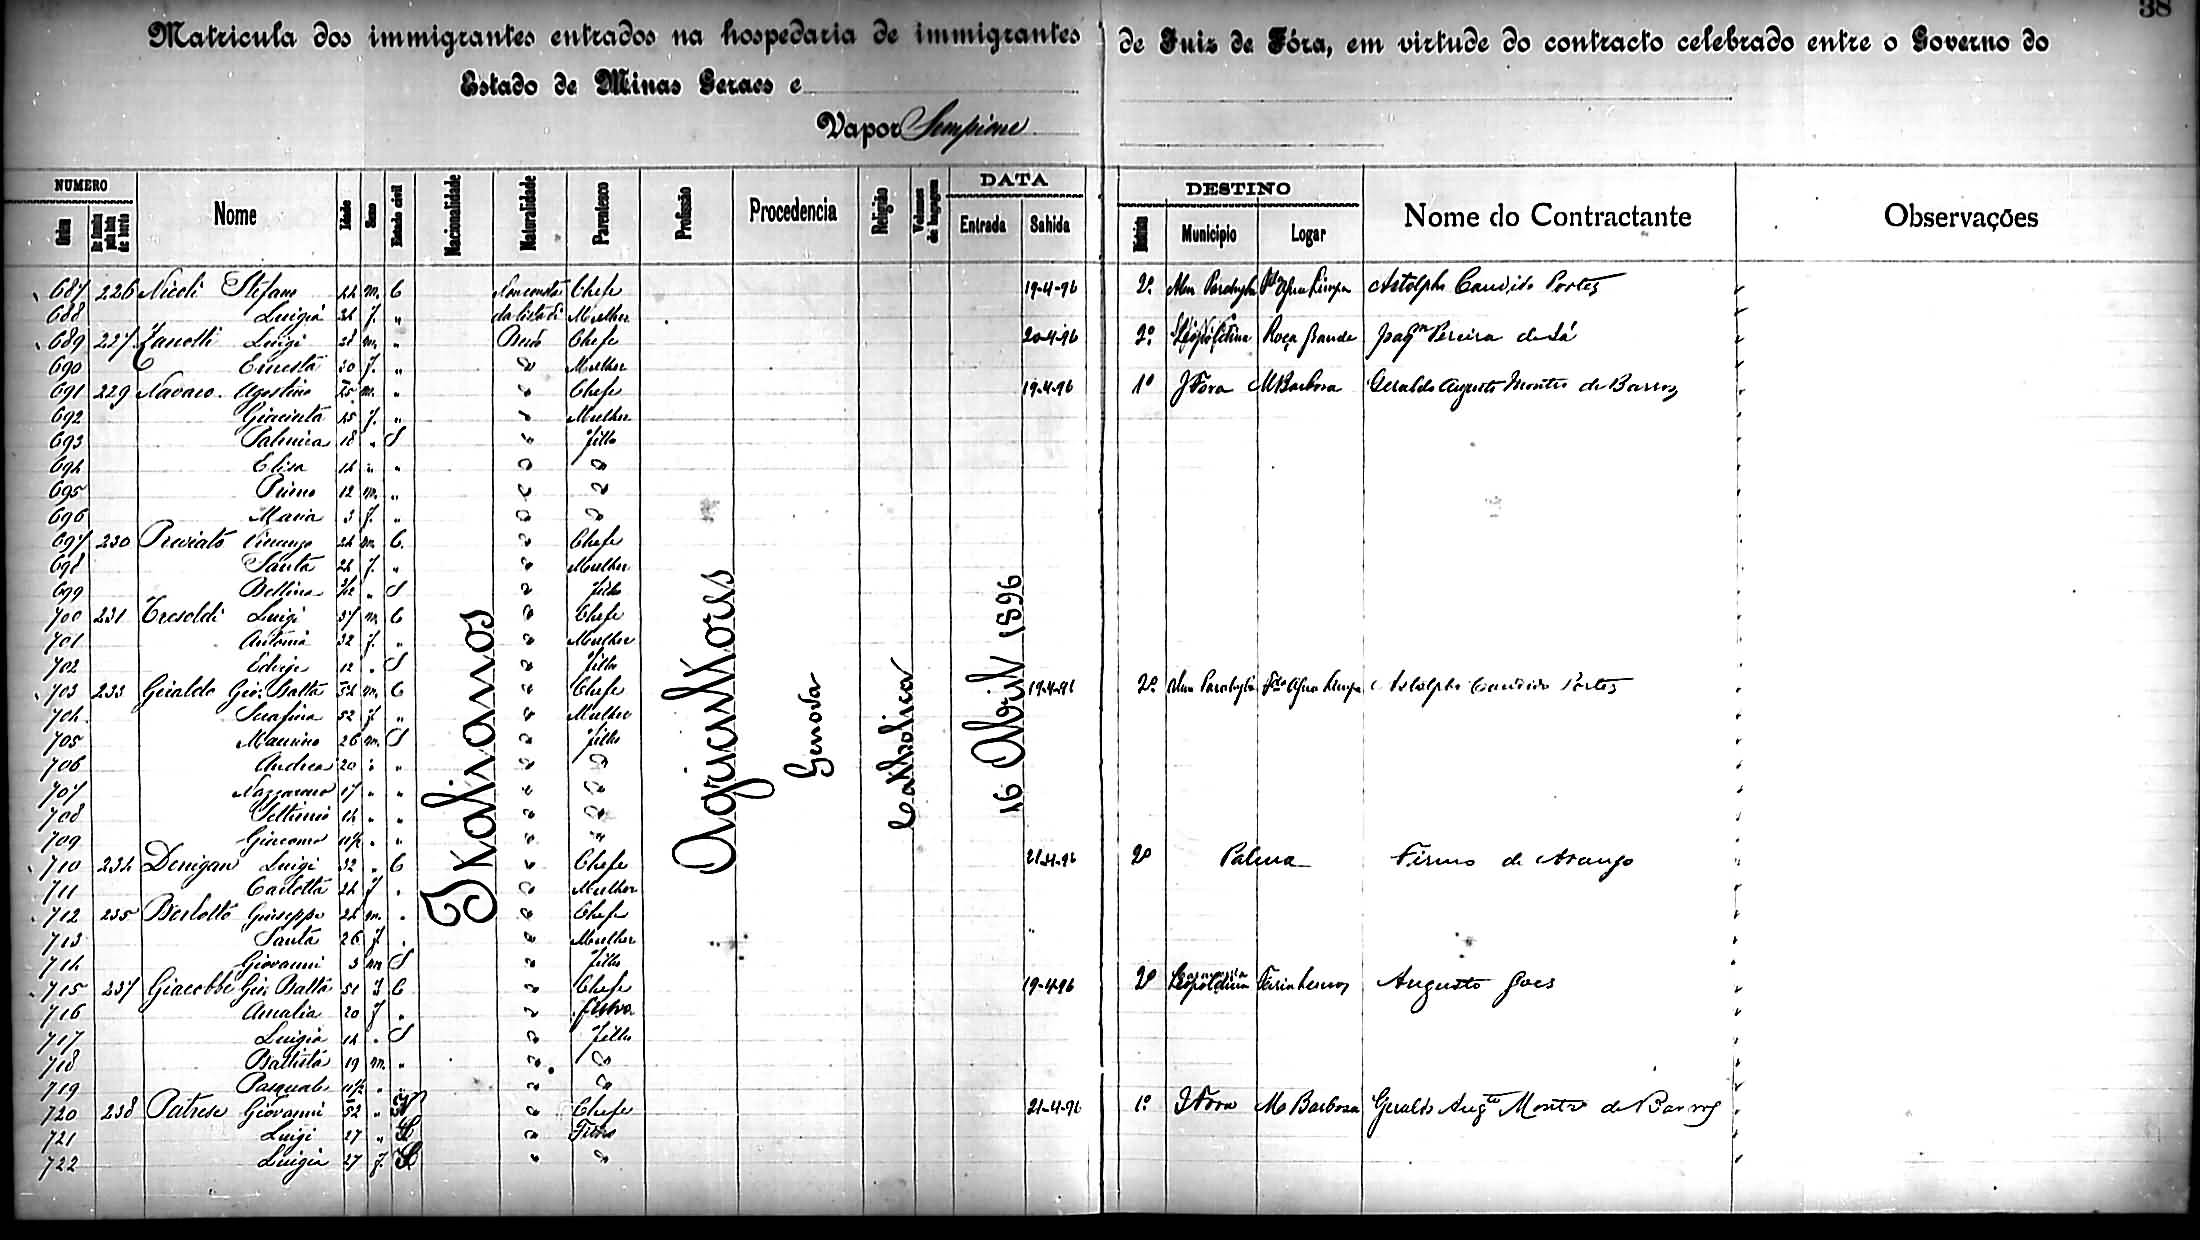 38
Matricula dos immigrantes entrados na hospedaria de immigrantes de Juiz de Fóra, em virtude do contracto celebrado entre o Governo do
Estado de Minas Geraes e
Vapor Sempione
NUMERO Nome Idade Sexo Estado civil Nacionalidade Naturalidade Parentesco Profissão Procedencia Religião Volumes de bagagem DATA DESTINO Nome do Contractante Observações
Ordem Entrada Sahida Districto Municipio Logar
Italianos Agricultores Genova Catholica 16 Abril 1896
687 226 Nicoli Stefano m. C Non consta Chefe 19-4-96 2º Alem Parahyba Astolpho Candido Portes
688 Luigia f. " da lista di Mulher
689 227 Zanetti Luigi 28 m. " Chefe 20-4-96 2º Leopoldina Roça Grande Joaqm Pereira de Sá
690 Ernesta 30 f. " " Mulher
691 229 Navaro Agostino m. " " Chefe 19-4-96 1º J Fora M Barbosa Geraldo Augusto Montro de Barros
692 Giacinta f. " " Mulher
693 Palmira 18 " S " filho
694 Elisa 14 " " " "
695 Primo 12 m. " " "
696 Maria 3 f. " " "
697 230 Previato 24 m. C. " Chefe
698 Santa 24 f. " " Mulher
699 Bettina " S " filho
700 231 Tresoldi Luigi 37 m. C " Chefe
701 Antonia 32 f. " " Mulher
702 Edvige 12 " S " filho
703 233 Giraldo Gio: Batta 54 m. C " Chefe 19-4-96 2º Alem Parahyba Astolpho Candido Portes
704 Serafina 52 f " " Mulher
705 Maurino 26 m. S " filho
706 Andrea 20 " " " "
707 Nazzareno 17 " " " "
708 Settimio 14 " " " "
709 Giacomo " " " "
710 234 Denigan Luigi 32 " C " Chefe 21-4-96 2º Palma Firmo de Araujo
711 Carlotta 24 f " " Mulher
712 235 Berlotto Giuseppe 24 m. " " Chefe
713 Santa 26 f " " Mulher "
714 Giovanni 3 m S " filho
715 237 Giacobbe Gio: Batta 51 C " Chefe 19-4-96 2º Leopoldina Augusto Goes
716 Amalia 20 f " "
717 Luigia 14 " S " filho
718 Battista 19 m. " " "
719 Pasquale " " " "
720 238 Patrese Giovanni 52 " " Chefe 21-4-96 1º J Fora Mo Barbosa Geraldo Augto Montro de Barros
721 Luigi 27 " S " Filho
722 Luigia 27 f. S " "